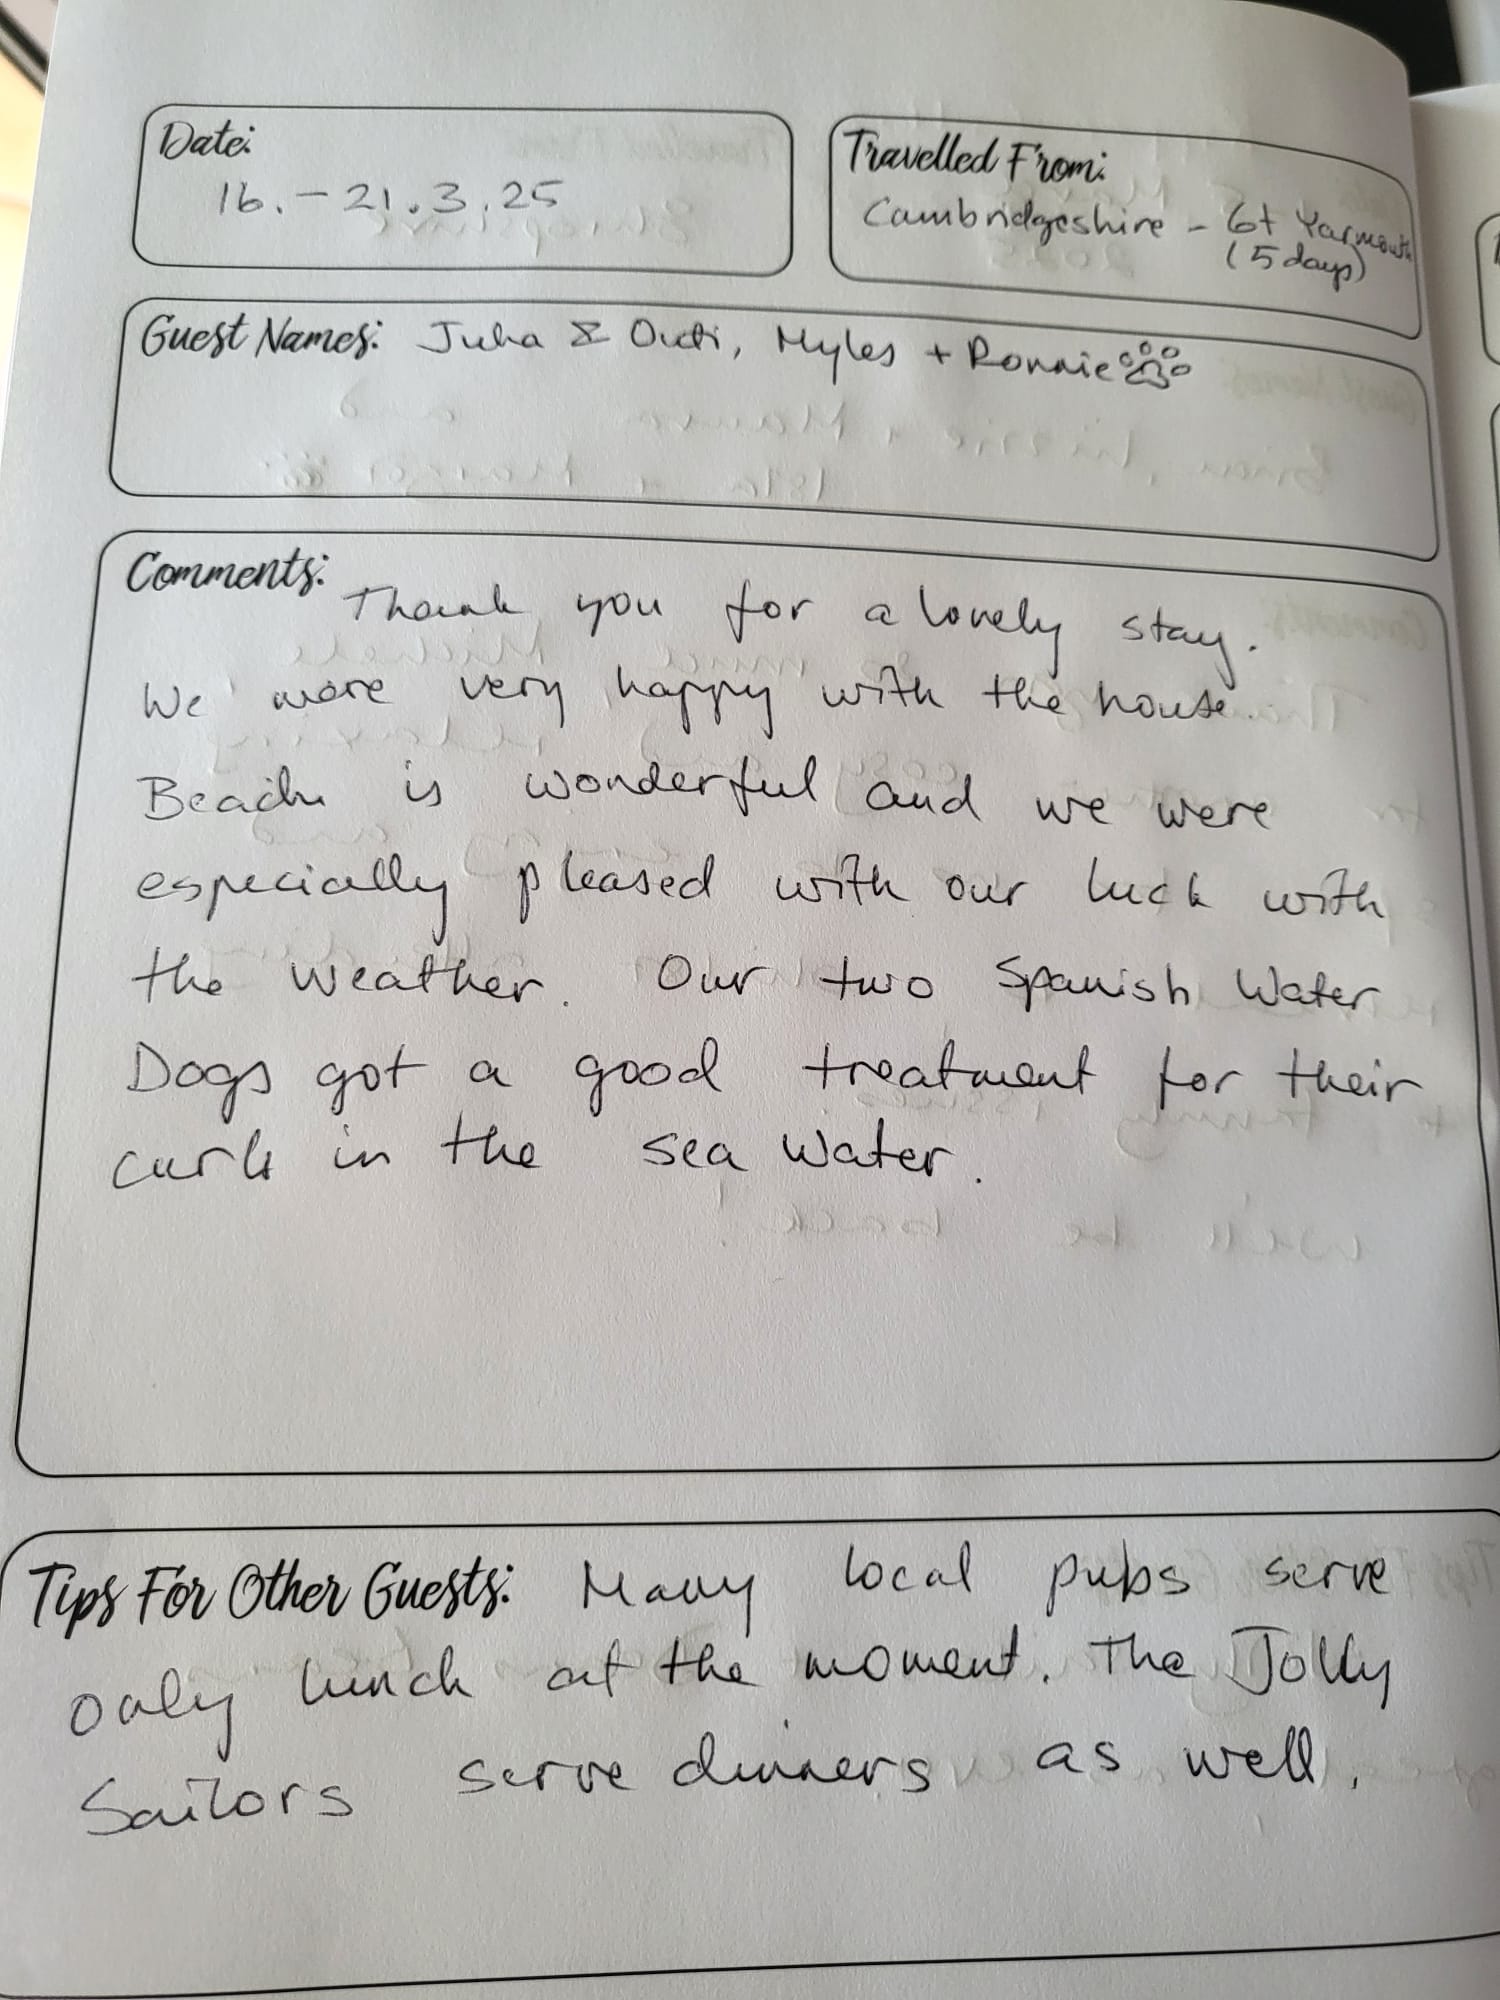 Date:
16.-21.3.25
Travelled From:
Cambridgeshire - Gt Yarmouth
(5 days)
Guest Names: Juha & Outi, Myles + Ronnie
Comments:
Thank you for a lovely stay.
We were very happy with the house.
Beach is wonderful and we were
especially pleased with our luck with
the weather. Our two Spanish Water
Dogs got a good treatment for their
curls in the sea water.
Tips For Other Guests: Many local pubs serve
only lunch at the moment. The Jolly
Sailors serve dinners as well.